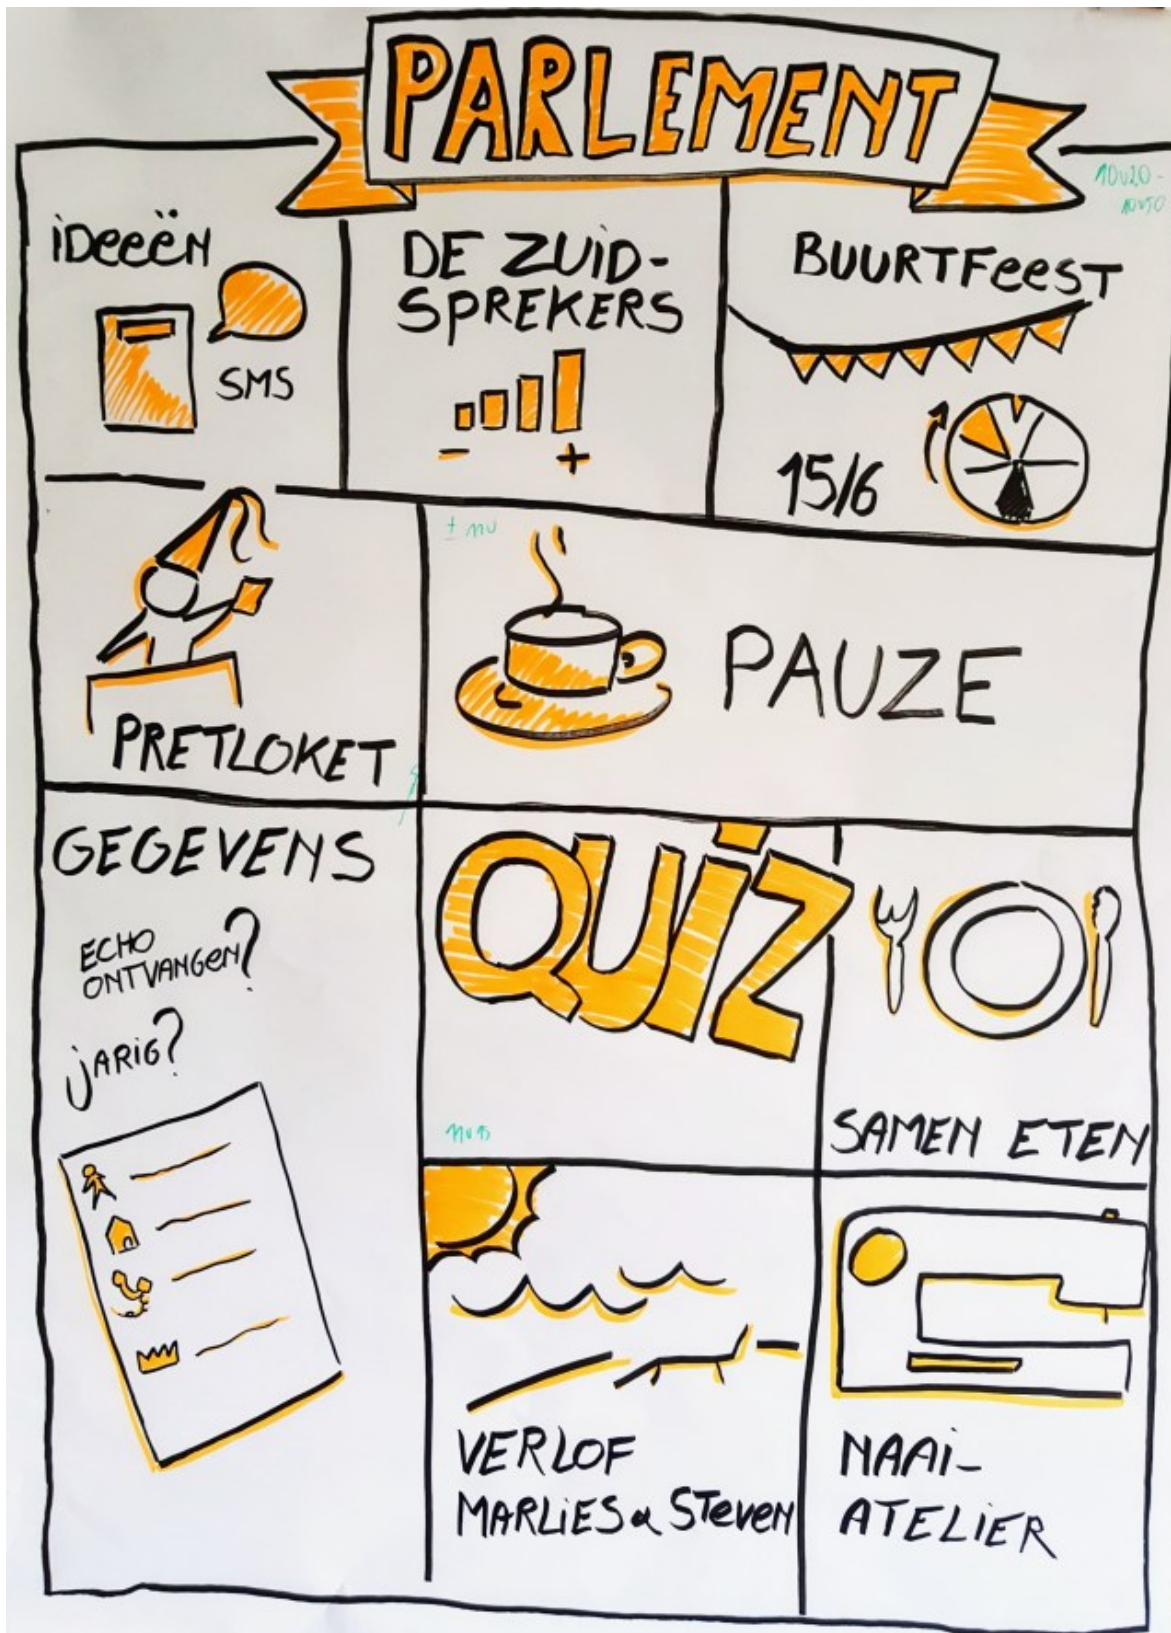 PARLEMENT
10u20 -
10u50
iDeeëN
SMS
DE ZUiD-
SPREKERS
-
+
BUURTFeeST
15/6
PRETLOKET
± 11u
PAUZE
GEGEVENS
ECHO
ONTVANGeN?
jARiG?
QUiZ
11u15
SAMEN ETEN
VERLOF
MARLiES & STeveN
NAAi-
ATELiER